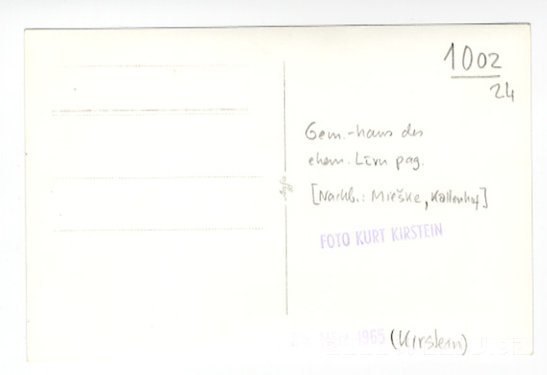 1002
24
Gem.-haus des
ehem. Līvu pag.
[Nachb.: Mieške, Kallenhof]
FOTO KURT KIRSTEIN
1965 (Kirstein)